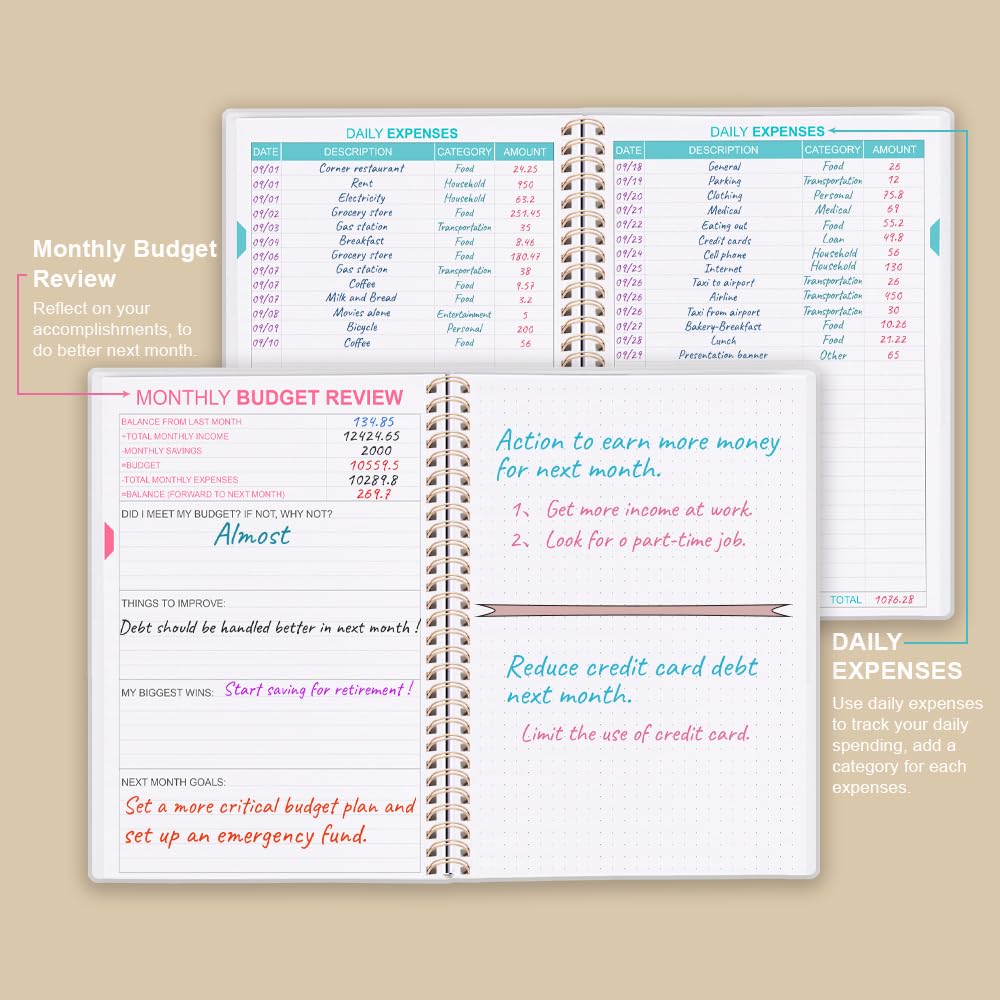 DAILY EXPENSES
DATE DESCRIPTION CATEGORY AMOUNT
09/01 Corner restaurant Food 24.25
09/01 Rent Household 950
09/01 Electricity Household 63.2
09/02 Grocery store Food 251.45
09/03 Gas station Transportation 35
09/04 Breakfast Food 8.46
09/06 Grocery store Food 180.47
09/07 Gas station Transportation 38
09/07 Coffee Food 9.57
09/07 Milk and Bread Food 3.2
09/08 Movies alone Entertainment 5
09/09 Bicycle Personal 200
09/10 Coffee Food 56
DAILY EXPENSES
DATE DESCRIPTION CATEGORY AMOUNT
09/18 General Food 26
09/19 Parking Transportation 12
09/20 Clothing Personal 75.8
09/21 Medical Medical 69
09/22 Eating out Food 55.2
09/23 Credit cards Loan 49.8
09/24 Cell phone Household 56
09/25 Internet Household 130
09/26 Taxi to airport Transportation 26
09/26 Airline Transportation 450
09/26 Taxi from airport Transportation 30
09/27 Bakery-Breakfast Food 10.26
09/28 Lunch Food 21.22
09/29 Presentation banner Other 65
TOTAL 1076.28
Monthly Budget
Review
Reflect on your
accomplishments, to
do better next month.
MONTHLY BUDGET REVIEW
BALANCE FROM LAST MONTH 134.85
+TOTAL MONTHLY INCOME 12424.65
-MONTHLY SAVINGS 2000
=BUDGET 10559.5
-TOTAL MONTHLY EXPENSES 10289.8
=BALANCE (FORWARD TO NEXT MONTH) 269.7
DID I MEET MY BUDGET? IF NOT, WHY NOT?
Almost
THINGS TO IMPROVE:
Debt should be handled better in next month !
MY BIGGEST WINS: Start saving for retirement !
NEXT MONTH GOALS:
Set a more critical budget plan and
set up an emergency fund.
Action to earn more money
for next month.
1、 Get more income at work.
2、 Look for o part-time job.
Reduce credit card debt
next month.
Limit the use of credit card.
DAILY
EXPENSES
Use daily expenses
to track your daily
spending, add a
category for each
expenses.